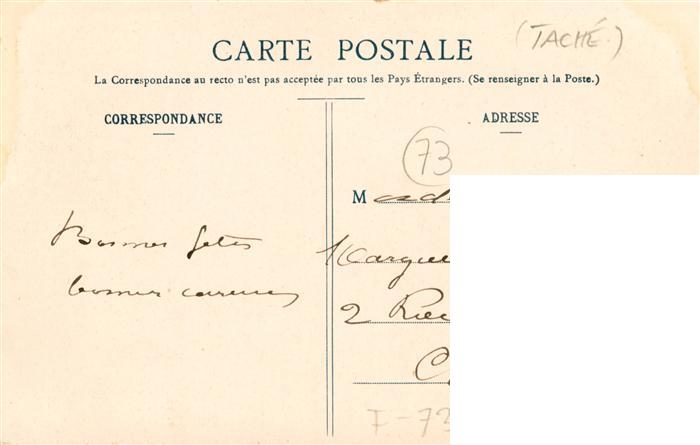 (TACHÉ.)
CARTE POSTALE
La Correspondance au recto n'est pas acceptée par tous les Pays Étrangers. (Se renseigner à la Poste.)
CORRESPONDANCE
ADRESSE
73
M
Bonnes fetes
bonnes
2
F-73